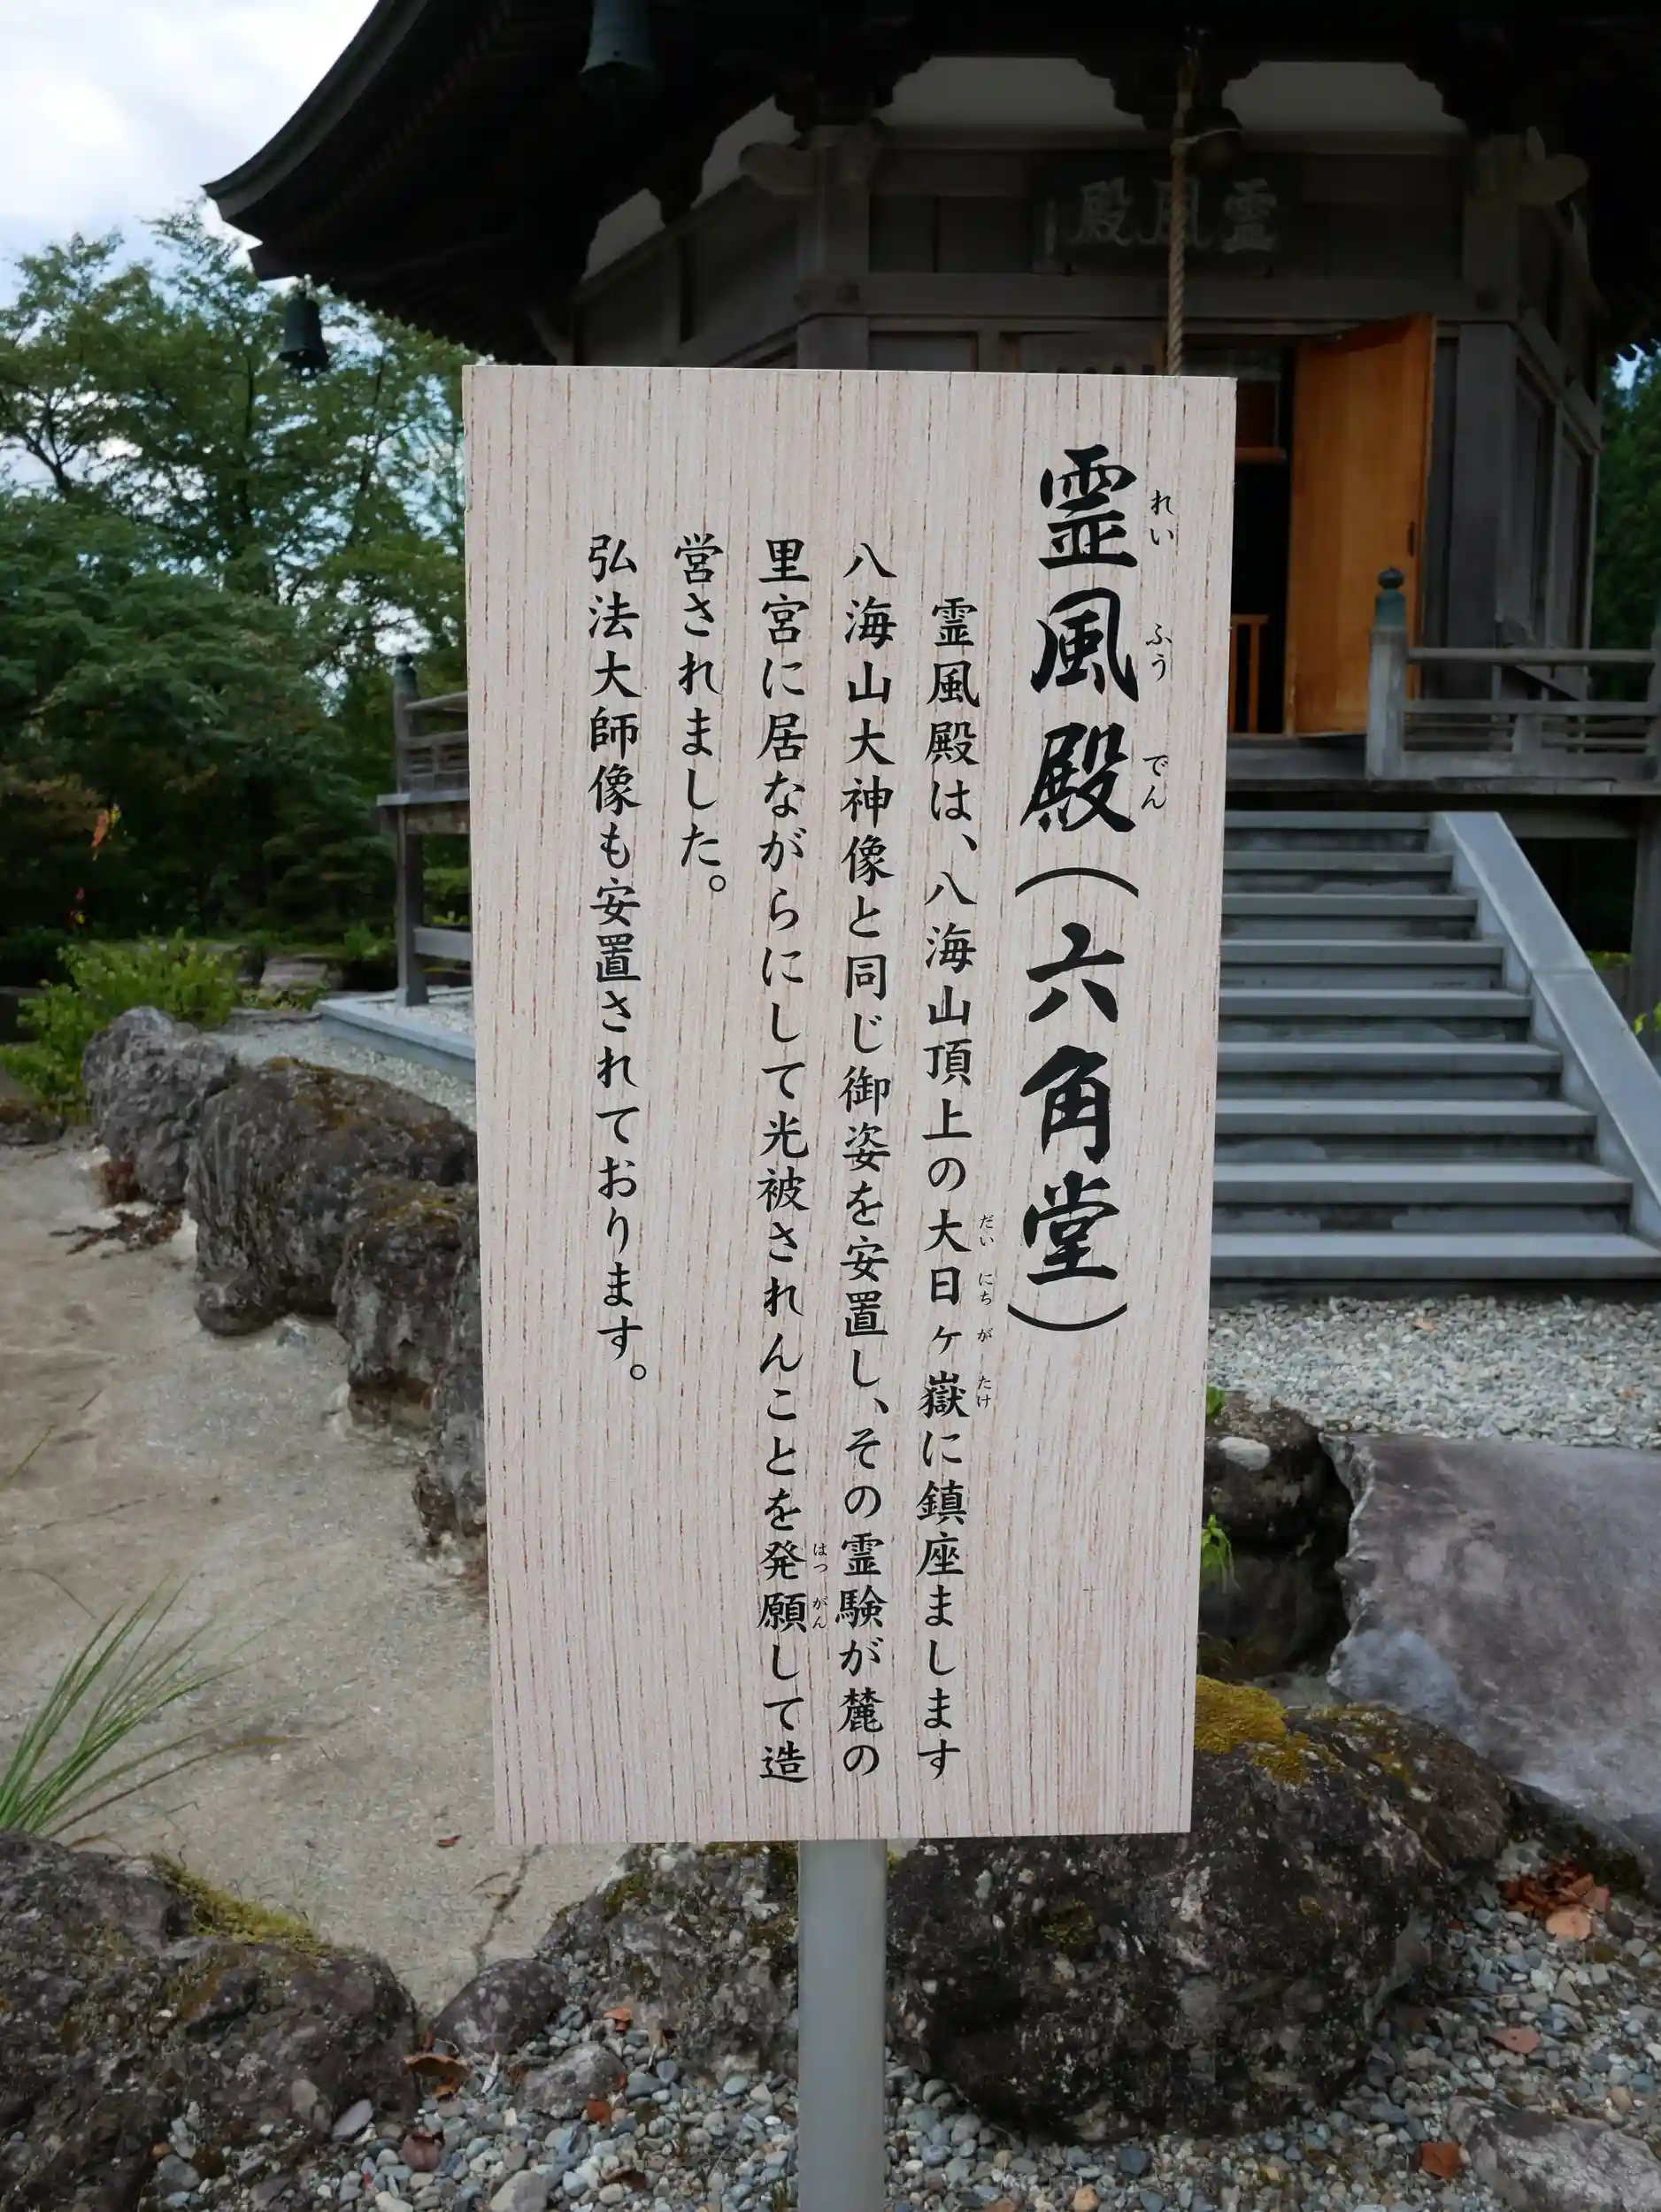 霊風殿
霊風殿（六角堂）
れいふうでん
霊風殿は、八海山頂上の大日ヶ嶽に鎮座まします
だいにちがたけ
八海山大神像と同じ御姿を安置し、その霊験が麓の
里宮に居ながらにして光被されんことを発願して造
はつがん
営されました。
弘法大師像も安置されております。